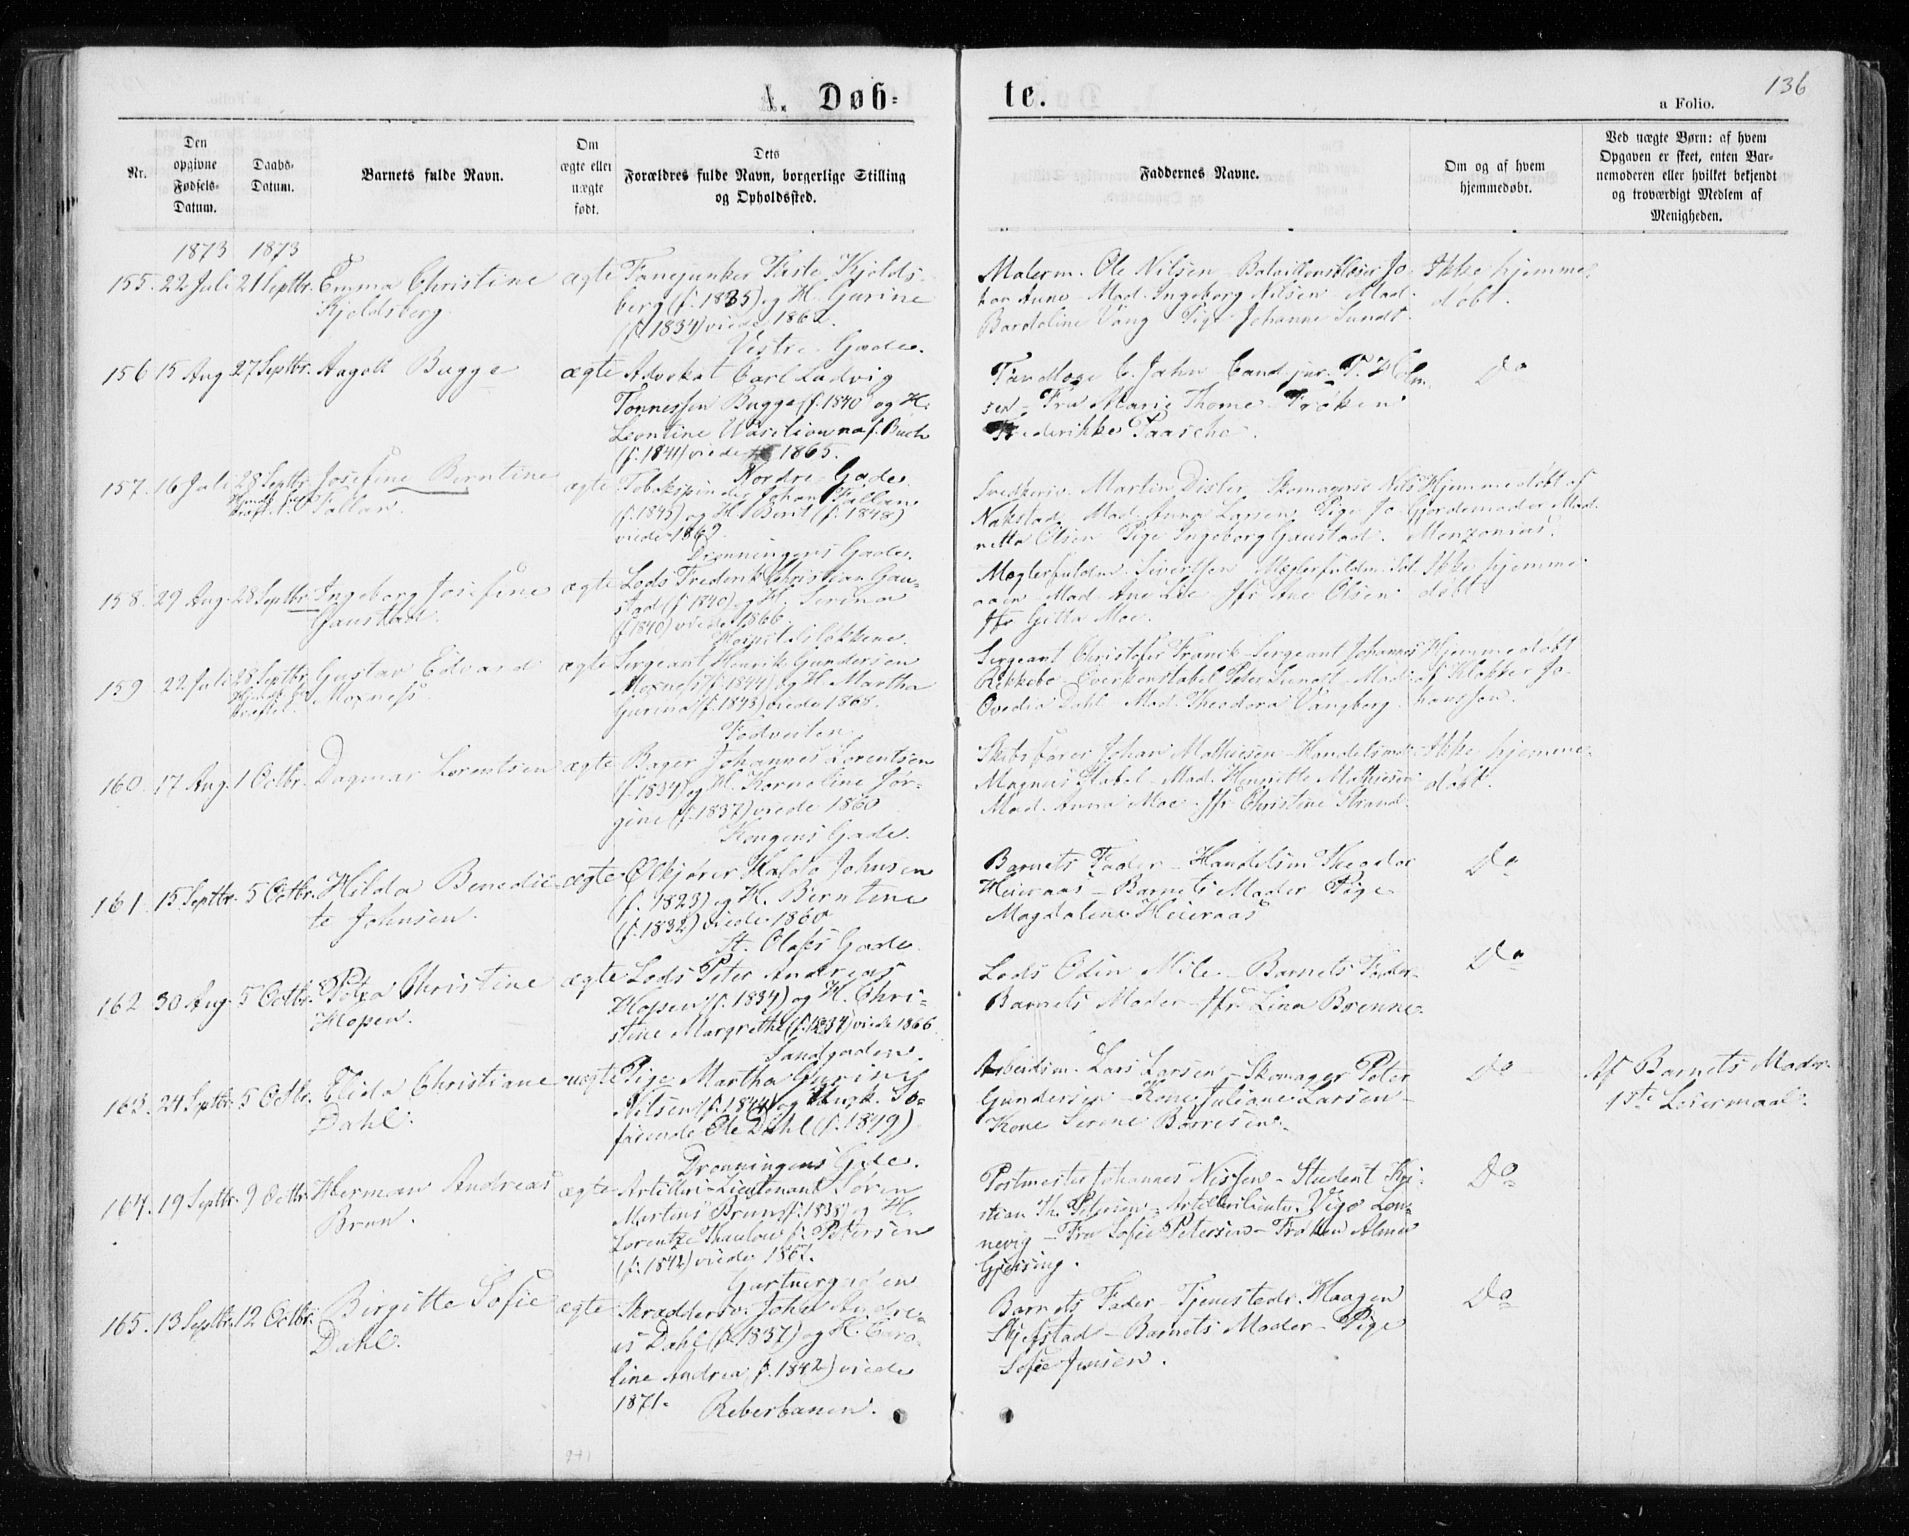 A. Døb-
te.
136
a Folio.
Nr.
Den opgivne Fødsels-Datum.
Daabs-Datum.
Barnets fulde Navn.
Om ægte eller uægte født.
Dets Forældres fulde Navn, borgerlige Stilling og Opholdssted.
Faddernes Navne.
Om og af hvem hjemmedøbt.
Ved uægte Børn: af hvem Opgaven er skeet, enten Barnemoderen eller hvilket bekjendt og troværdigt Medlem af Menigheden.
1873 1873
155. 22 Juli 21 Septbr. Emma Christine
Kjeldsberg.
ægte
Fanejunker Peste Kjelds-
berg (f. 1835) og H. Gurine
(f. 1834) viede 1862.
Vestre Gade.
Malerm. Ole Nilsen
Mad. Ingeborg Nilsen Mad.
Bardoline Vang Pige Johanne Sundt.
Ikke hjemme-
døbt.
156 15 Aug. 27 Septbr. Aagot Bugge
ægte
Advokat Carl Ludvig
Tonnessen Bugge (f. 1840 og H.
Leontine f. Buch
(f. 1841) viede 1865.
Nordre Gade.
Tandlæge C. Jahn Cand. jur. P. Holm-
sen Fru Marie Thome Frøken
Frederikke Paasche.
Do
157. 16 Juli 28 Septbr. Josefine Berntine
Fallan.
ægte
Tobakspinder Johan Fallan
(f. 1845) og H. Berit (f. 1848)
viede 1869.
Dronningens Gade.
Svedkeriv. Martin Disler Skomagersv. Nils
Nakstad Mad. Anna Larsen Pige Ja-
netta Olsen Pige Ingeborg Gaustad.
Hjemmedøbt af
Gjordemoder Mad.
158. 29 Aug. 28 Septbr. Ingeborg Josefine
Gaustad.
ægte
Lods Frederik Christian Gau-
stad (f. 1840) og H. Serina
(f. 1840) viede 1866.
Mæglerfuldm. Sivertsen Mæglerfuldm.
Mad. Ane Lie Jfr. Ane Olsen
Jfr Gitta Moe.
Ikke hjemme-
døbt.
159 22 Juli 28 Septbr. Gustav Edvard
Moxness.
ægte
Sergeant Henrik Gundersen
Moxness (f. 1844) og H. Martha
Gurina (f. 1843) viede 1868.
Sergeant Christofer Franck Sergeant Johannes
Rekkebo Overkonstabel Peter Sundt Mad.
Ovedia Dahl Mad. Theodora Vangberg.
Hjemmedøbt
af Klokker Jo-
hanssen.
160. 17 Aug. 1 Octbr. Dagmar Lorentsen
ægte
Bager Johannes Lorentsen
(f. 1834) og H. Karoline Jør-
gine (f. 1837) viede 1860
Kongens Gade.
Skibsfører Johan Mathiesen Handelsmd.
Magnus Mad. Henriette Mathiesen
Mad. Anna Moe. Jfr Christine Strand.
Ikke hjemme-
døbt.
161. 15 Septbr. 5 Octbr. Hilda Benedic-
te Johnsen.
ægte
Ølkjører Haldo Johnsen
(f. 1823) og H. Berntine
(f. 1832) viede 1860
St. Olafs Gade.
Barnets Fader Handelsm Theodor
Heieraas Barnets Moder Pige
Magdalene Heieraas
Do
162 30 Aug. 5 Octbr. Petra Christine
Hopen.
ægte
Lods Peter Andreas
Hopen (f. 1834) og H. Chri-
stine Margrethe (f. 1834) viede 1866
Sandgaden.
Lods Odin Mile Barnets Fader
Barnets Moder Jfr Lina Brenne.
Do
163. 24 Septbr. 5 Octbr. Elida Christiane
Dahl.
uægte
Pige Martha Gurine
Nilsen (f. 1844) og Ungk. Sø-
farende Ole Dahl (f. 1849)
Dronningens Gde.
Arbeidsm. Lars Larsen Skomager Peter
Gundersen Kone Juliane Larsen
Kone Serine Borresen.
Do
Af Barnets Moder
1ste Leiermaal.
164. 19 Septbr. 9 Octbr. Herman Andreas
Brun.
ægte
Artilleri-Lieutenant Søren
Martins Brun (f. 1835) og H.
Lorentze Thaulow f. Petersen
(f. 1842) viede 1867.
Gartnergaden
Postmester Johannes Nissen Student Kri-
stian Th. Petersen Artilleriliuten. Vigo Lon-
nevig Fru Sofie Petersen Frøken Alma
Gjersing.
Do
165. 13 Septbr. 12 Octbr. Birgitte Sofie
Dahl.
ægte
Skrædersv. Johan Andre-
as Dahl (f. 1837) og H. Caro-
line Andrea (f. 1842) viede
1871. Reberbanen.
Barnets Fader Tjenstedr. Haagen
Skjefstad Barnets Moder Pige
Sofie Jensen.
Do